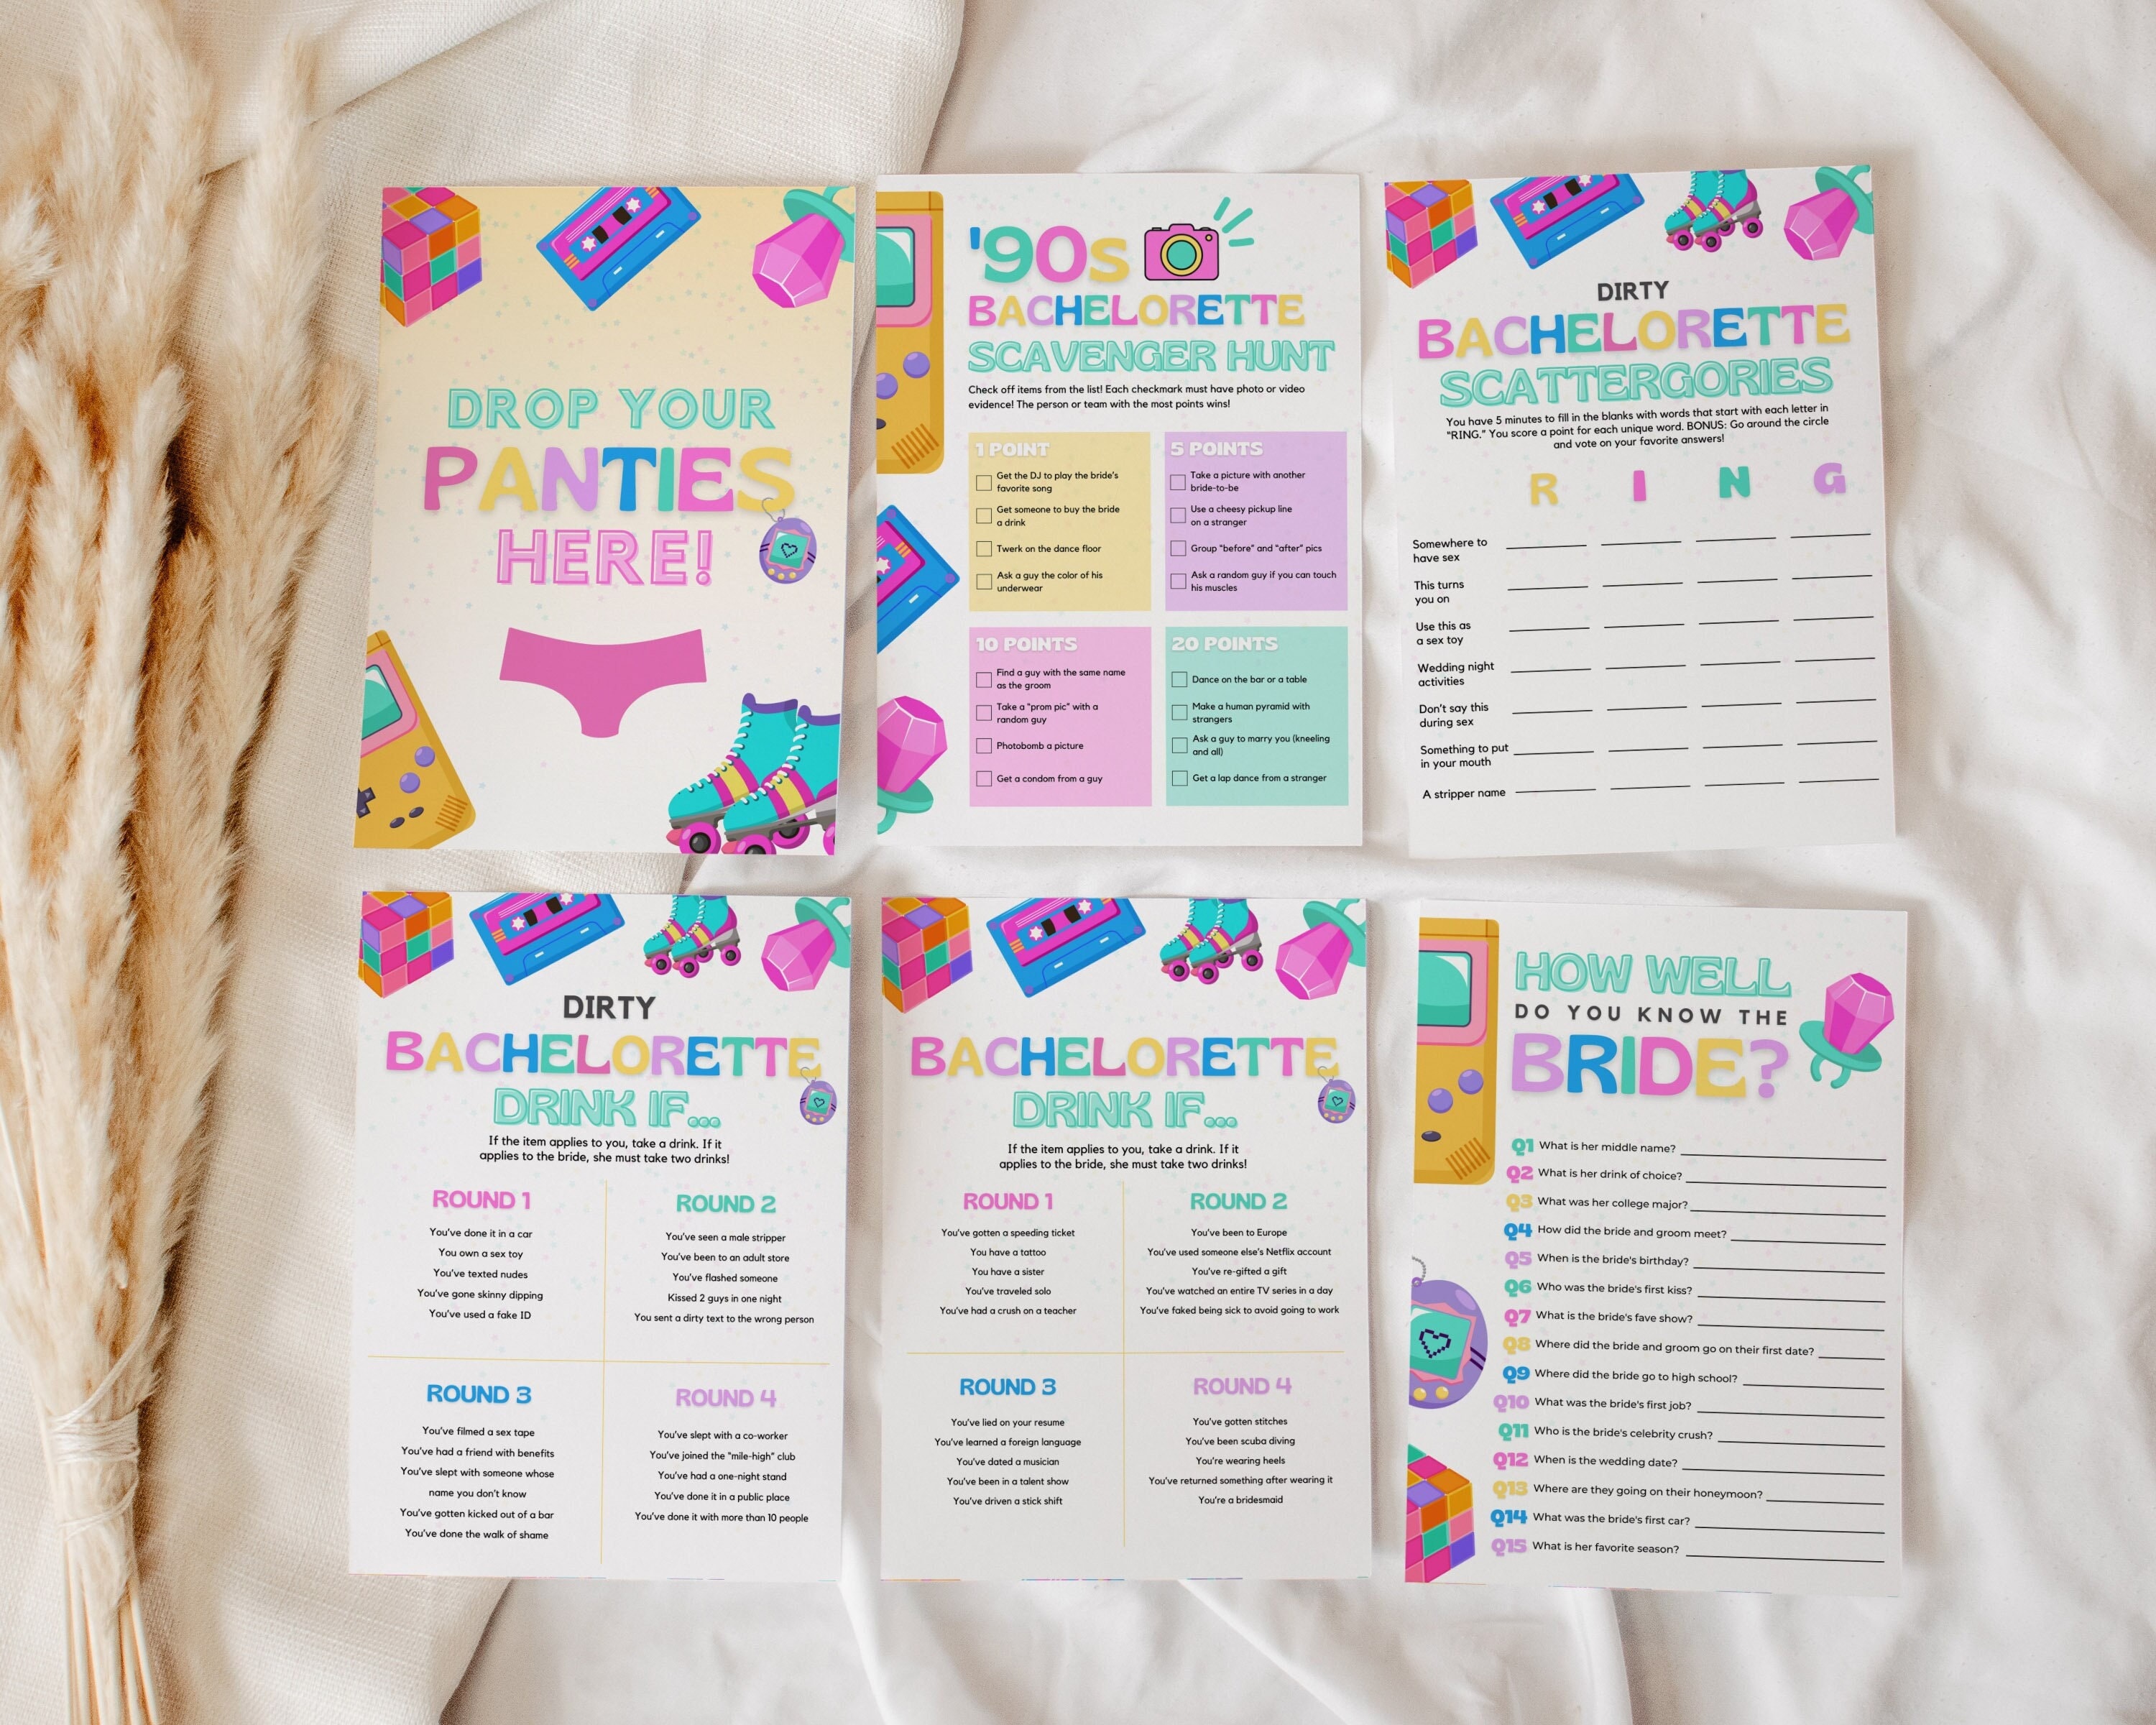 DROP YOUR
PANTIES
HERE!
'90s
BACHELORETTE
SCAVENGER HUNT
Check off items from the list! Each checkmark must have photo or video
evidence! The person or team with the most points wins!
1 POINT
Get the DJ to play the bride's
favorite song
Get someone to buy the bride
a drink
Twerk on the dance floor
Ask a guy the color of his
underwear
5 POINTS
Take a picture with another
bride-to-be
Use a cheesy pickup line
on a stranger
Group "before" and "after" pics
Ask a random guy if you can touch
his muscles
10 POINTS
Find a guy with the same name
as the groom
Take a "prom pic" with a
random guy
Photobomb a picture
Get a condom from a guy
20 POINTS
Dance on the bar or a table
Make a human pyramid with
strangers
Ask a guy to marry you (kneeling
and all)
Get a lap dance from a stranger
DIRTY
BACHELORETTE
SCATTERGORIES
You have 5 minutes to fill in the blanks with words that start with each letter in
"RING." You score a point for each unique word. BONUS: Go around the circle
and vote on your favorite answers!
R I N G
Somewhere to
have sex
This turns
you on
Use this as
a sex toy
Wedding night
activities
Don't say this
during sex
Something to put
in your mouth
A stripper name
DIRTY
BACHELORETTE
DRINK IF...
If the item applies to you, take a drink. If it
applies to the bride, she must take two drinks!
ROUND 1
You've done it in a car
You own a sex toy
You've texted nudes
You've gone skinny dipping
You've used a fake ID
ROUND 2
You've seen a male stripper
You've been to an adult store
You've flashed someone
Kissed 2 guys in one night
You sent a dirty text to the wrong person
ROUND 3
You've filmed a sex tape
You've had a friend with benefits
You've slept with someone whose
name you don't know
You've gotten kicked out of a bar
You've done the walk of shame
ROUND 4
You've slept with a co-worker
You've joined the "mile-high" club
You've had a one-night stand
You've done it in a public place
You've done it with more than 10 people
BACHELORETTE
DRINK IF...
If the item applies to you, take a drink. If it
applies to the bride, she must take two drinks!
ROUND 1
You've gotten a speeding ticket
You have a tattoo
You have a sister
You've traveled solo
You've had a crush on a teacher
ROUND 2
You've been to Europe
You've used someone else's Netflix account
You've re-gifted a gift
You've watched an entire TV series in a day
You've faked being sick to avoid going to work
ROUND 3
You've lied on your resume
You've learned a foreign language
You've dated a musician
You've been in a talent show
You've driven a stick shift
ROUND 4
You've gotten stitches
You've been scuba diving
You're wearing heels
You've returned something after wearing it
You're a bridesmaid
HOW WELL
DO YOU KNOW THE
BRIDE?
Q1 What is her middle name?
Q2 What is her drink of choice?
Q3 What was her college major?
Q4 How did the bride and groom meet?
Q5 When is the bride's birthday?
Q6 Who was the bride's first kiss?
Q7 What is the bride's fave show?
Q8 Where did the bride and groom go on their first date?
Q9 Where did the bride go to high school?
Q10 What was the bride's first job?
Q11 Who is the bride's celebrity crush?
Q12 When is the wedding date?
Q13 Where are they going on their honeymoon?
Q14 What was the bride's first car?
Q15 What is her favorite season?